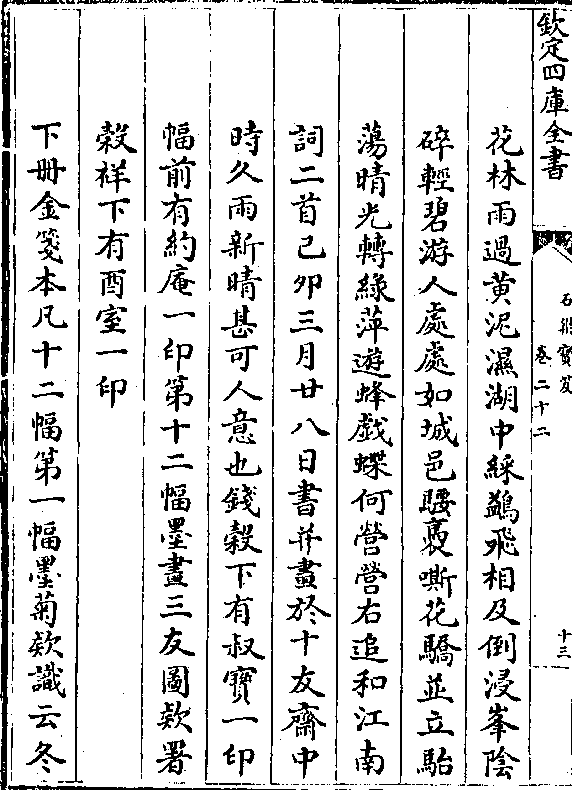 欽定四庫全書
石渠寶笈
卷二十二
十三
花林雨過黄泥濕湖中綵鷁飛相及倒浸峯陰
碎輕碧游人處處如城邑騕褭嘶花驕並立駘
蕩晴光轉綠萍遊蜂戯蝶何營營右追和江南
詞二首己夘三月廿八日書并畫於十友齋中
時久雨新晴甚可人意也錢穀下有叔寳一印
幅前有約庵一印第十二幅墨畫三友圖欵署
榖祥下有酉室一印
下册金箋本凡十二幅第一幅墨菊欵識云冬